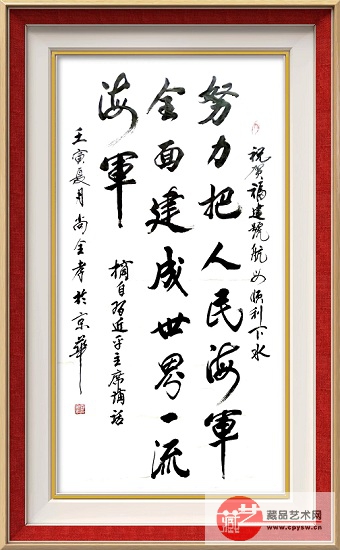 祝贺福建号航母顺利下水
努力把人民海軍
全面建成世界一流
海軍
摘自习近平主席讲话
壬寅夏月尚全孝於京華
藏艺
藏品艺术网
www.cpysw.cn